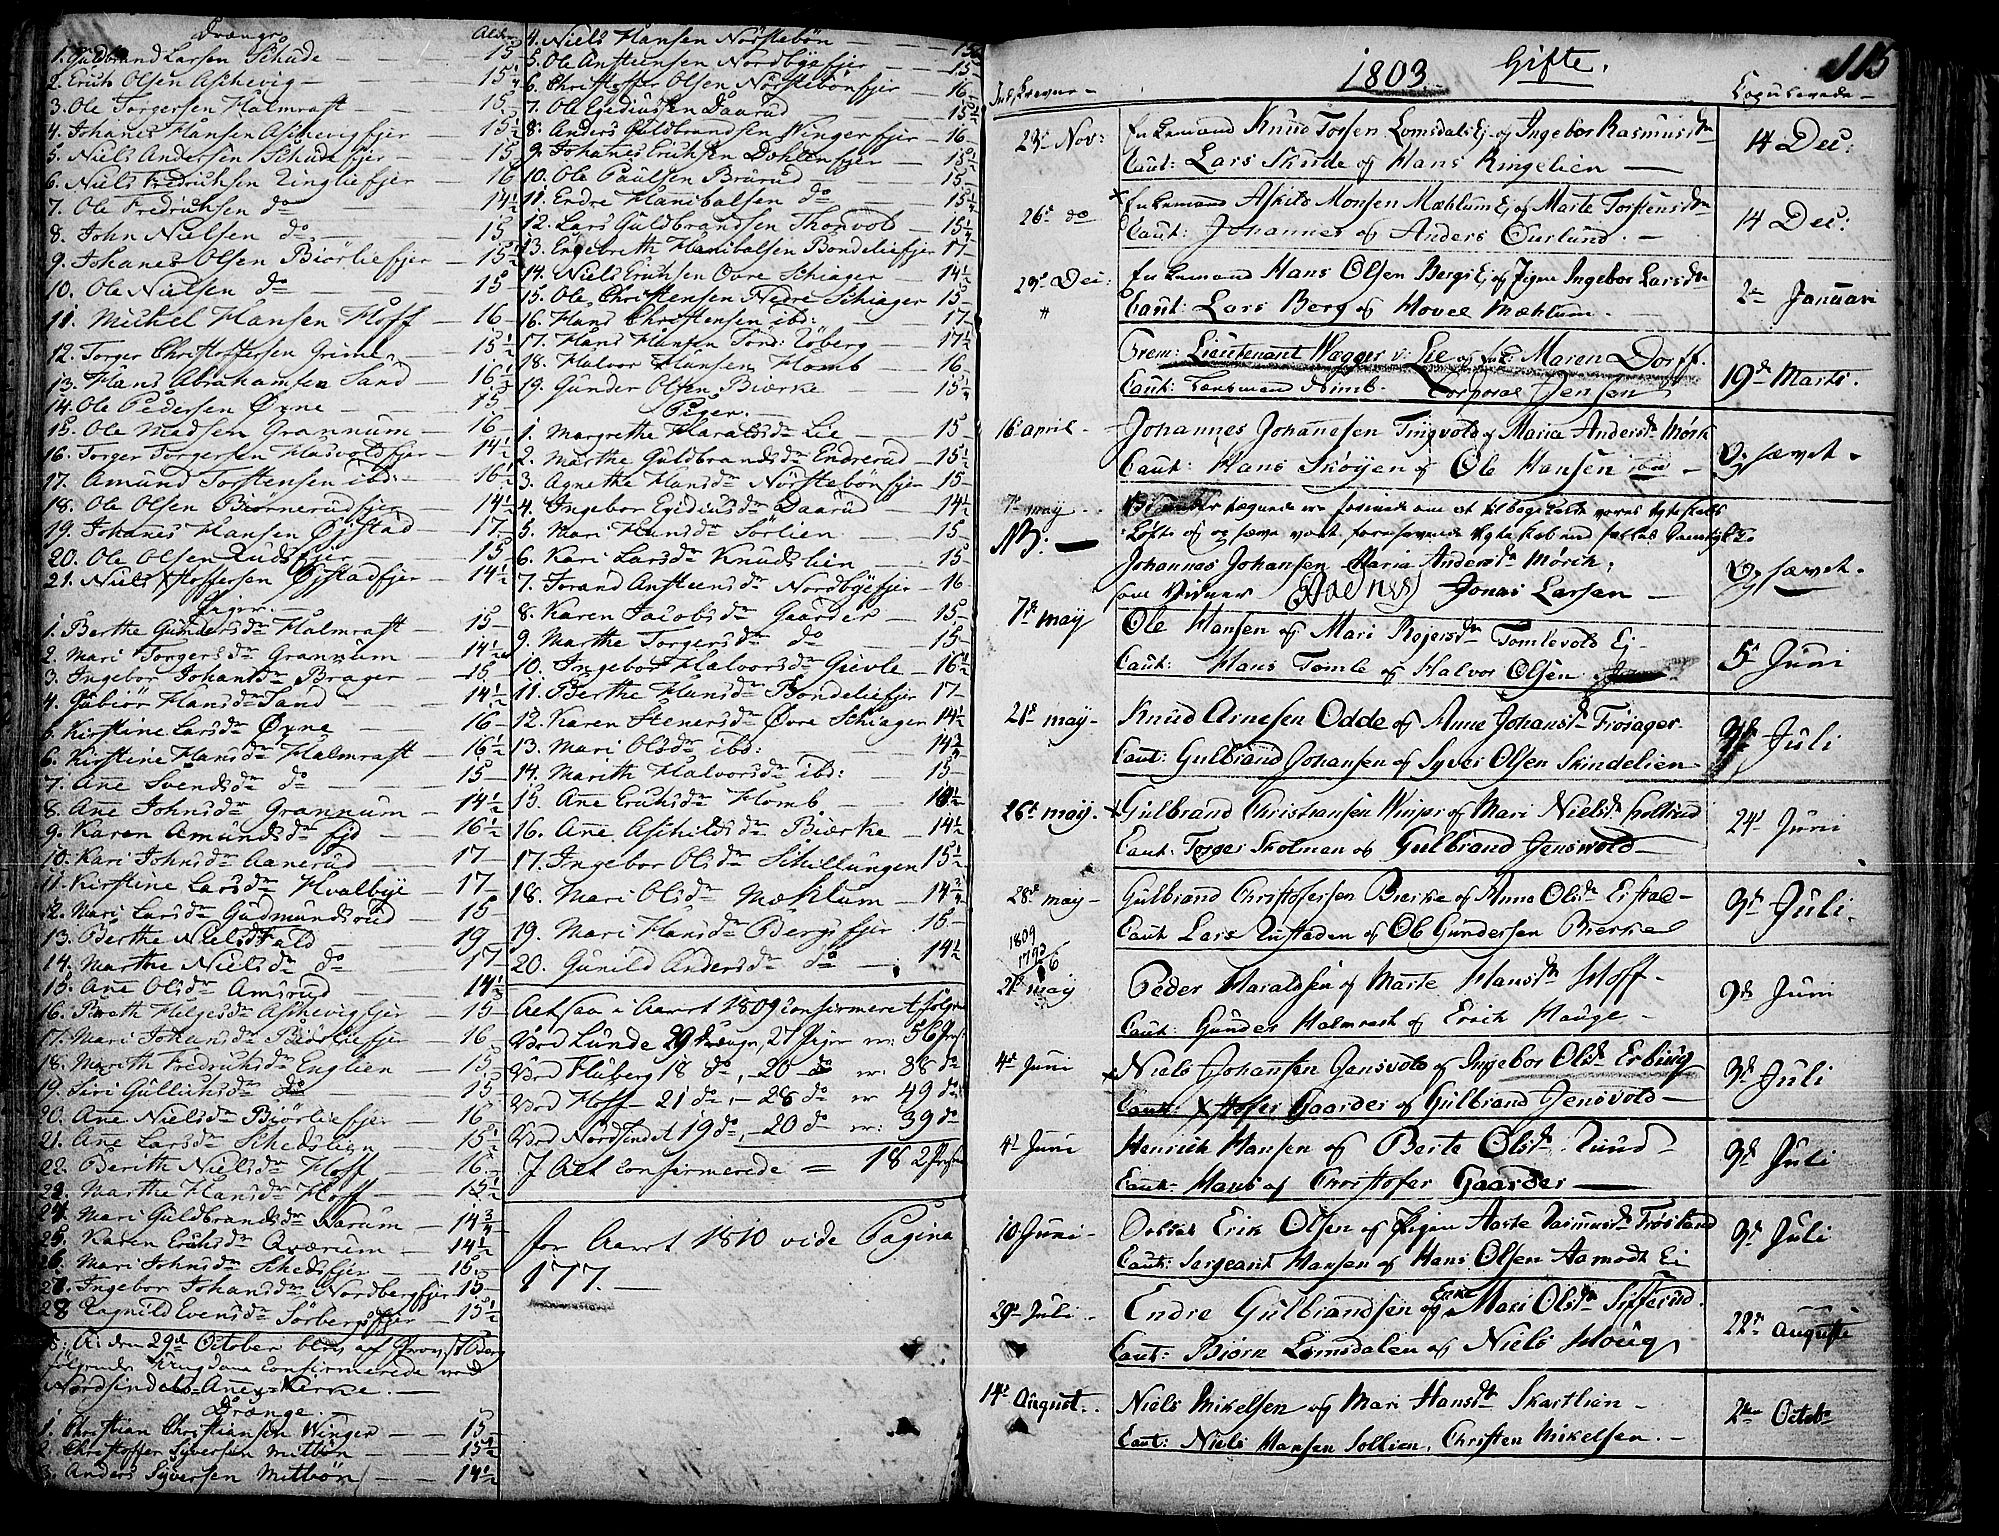 Drænge Alder
1. Guldbrand Larsen Schude — 15
2. Erich Olsen Aschevig — 15 1/4
3. Ole Torgersen Halmraft — 15
4. Johanes Hansen Aschevigfjer — 15 1/2
5. Niels Andersen Schudefjer — 15
6. Niels Fredrichsen Ringliefjer — 16
7. Ole Fredrichsen do — 14 1/2
8. John Nielsen do — 15
9. Johanes Olsen Biörliefjer — 15 1/2
10. Ole Nielsen do — 15
11. Michel Hansen Hoff — 16
12. Torger Christoffersen Grime — 15 1/2
13. Hans Abrahamsen Sand — 16 1/3
14. Ole Pedersen Øvne — 15
15. Ole Madsen Grannum — 16
16. Torger Torgersen Hasvoldfjer — 14 1/2
17. Amund Torstensen ibd: — 16 1/2
18. Ole Olsen Biörnerudfjer — 14 1/2
19. Johanes Hansen Øjstad — 17
20. Ole Olsen Rudsfjer — 15
21. Niels Xstoffersen Øjstadfjer — 14 1/2
Piger.
1. Berthe Gundersdr Halmraft — 15
2. Mari Torgersdr Grannum — 14 1/2
3. Ingebor Johansdr Brager — 15
4. Gubiör Hansdr Sand — 14 1/2
5. Kirstine Larsdr Øvne — 16
6. Kirstine Hansdr Halmraft — 16 1/2
7. Ane Svendsdr do — 15
8. Ane Johnsdr Grannum — 14 1/2
9. Karen Amundsdr fjd — 16 1/2
10. Kari Johnsdr Aanerud — 17
11. Kirstine Larsdr Hvalbye — 17
12. Mari Larsdr Gudmundsrud — 15
13. Berthe Nielsdr Fald — 19
14. Marthe Nielsdr do — 17
15. Ane Olsdr Amsrud — 14 1/3
16. Berith Helgesdr Aschevigfjer — 15
17. Mari Johansdr Biörliefjer — 16
18. Marith Fredrichsdr Englien — 15
19. Siri Gullichsdr do — 15
20. Ane Nielsdr Biörliefjer — 16
21. Ane Larsdr Schedslien — 15 1/2
22. Berith Nielsdr Hoff — 16
23. Marthe Hansdr Hoff — 15 1/2
24. Mari Guldbrandsdr Narum — 14 3/4
25. Karen Erichsdr Qværum — 14 1/2
26. Mari Johnsdr Schedsfjer — 15
27. Ingebor Johansdr Nordbergfjer — 15
28 Ragnild Evensdr Sörbergsfjer — 15 1/2
den 29de October blev af Provst Oberg
følgende Ungdom Confirmerede ved
Nordsindets Anex Kirke.
Drænge.
1. Christian Christiansen Winger — 15
2. Christoffer Syversen Mitbön — 15 1/2
3. Anders Syversen Mitbön — 14 1/2
4. Niels Hansen Nörstebön — 15
5. Ole Anstensen Nordbyefjer — 15
6. Christoffer Olsen Nörstebönfjer — 16
7. Ole Egidiussen Daarud — 15 1/2
8. Anders Guldbrandsen Wingerfjer — 16
9. Johanes Erichsen Dahlenfjer — 15 1/2
10. Ole Paulsen Brürud — 15
11. Endre Hanibalsen do — 15 1/4
12. Lars Guldbrandsen Thonvold — 15 1/4
13. Engebreth Hanibalsen Bondeliefjer 17
14. Niels Erichsen Övre Schiager — 14 1/2
15. Ole Christensen Nedre Schiager — 15
16. Hans Christensen ibd: — 17
17. Hans Hansen Sönd: Röberg — 17 1/2
18. Halvor Hansen Homb — 16
19. Gunder Olsen Biærke — 15 1/4
Piger.
1. Margrethe Haralsdr Lie — 15
2. Marthe Guldbrandsdr Endrerud — 15 1/2
3. Agnethe Hansdr Nörstebönfjer — 15
4. Ingebor Egidiusdr Daarud — 14 1/2
5. Mari Hansdr Sörlien — 15
6. Kari Larsdr Knudslien — 15
7. Torand Anstensdr Nordbyefjer — 16
8. Karen Jacobsdr Gaarder — 15
9. Marthe Torgersdr do — 15
10. Ingebor Halvorsdr Gievle — 16 1/2
11. Berthe Hansdr Bondeliefjer 17
12. Karen Stenersdr Övre Schiager 14 1/2
13. Mari Olsdr ibd: — 14 3/4
14. Marith Halvorsdr ibd: — 15
15. Ane Erichsdr Homb — 16 1/2
16. Ane Aschildsdr Biærke — 14 1/2
17. Ingebor Olsdr Schillungen 15 1/2
18. Mari Olsdr Mæhlum — 14 3/4
19. Mari Hansdr Bergsfjer — 15
20. Gunild Andersdr do — 14 1/2
Altsaa i Aaret 1809 Confirmeret følgende
Ved Lunde 29 Drænge, 27 Piger er: 56
Ved Fluberg 18 do, — 20 do er: 38 do
Ved Hoff — 21 do, — 28 do er 49 do
Ved Nordsindet 19 do, — 20 do er: 39 do
I Alt Confirmerede = 182
for Aaret 1810 vide Pagina
177.
1803. Gifte. 115
Copulerede
23de Nov: Enkemand Knud Torsen Lomsdals Ej: og Ingebor Rasmusdr 14 Dec:
Caut: Lars Skude og Hans Ringelien
26de do × Enkemand Askild Monsen Mæhlum Ej: og Marte Torstensdr 14 Dec:
Caut: Johannes og Anders Ourlund
29de Dec: Enkemand Hans Olsen Bergs Ej: og Pigen Ingebor Larsdr 2de Januari
Caut: Lars Berg og Hovel Mæhlum
Lieutenant Wegger v: Lie og Maren Dorff. 19de Marts.
Caut: Lensmand Corporal Jensen
16 april Johannes Johannesen Tingvold og Maria Andersdr Mørk Ophævet.
Caut: Hans Skøyen og Ole Hansen ibd
7de may
NB: Løfte og
Johannes Johansen Maria Andersdr Mörch, Ophævet.
som Vidner Jonas Larsen
7de may Ole Hansen og Mari Rejersdr Tomlevold Ej: 5te Juni
Caut: Hans Tomle og Halvor Olsen
21de may Knud Arnesen Odde og Anne Johansdr Frøisager 3de Juli
Caut: Gulbrand Johansen og Syver Olsen Skindelien
26de may. × Gulbrand Christiansen Winjer og Mari Nielsdr Holtrud 24de Juni
Caut: Torger Skolman og Gulbrand Jensvold
28de may Gulbrand Christofersen Bierke og Anne Olsdr Eistad 3de Juli.
Caut Lars Rustaden og Ole Gundersen Bierke
1809
1793
16
28 may Peder Haraldsen og Marte Hansdr Hoff 9de Juni
Caut: Gunder Halmrast og Erich Hauge
4de Juni × Niels Johansen Jensvold og Ingebor Olsdr Erbing 3de Juli
Caut: Xstofer Gaarder og Gulbrand Jensvold
4de Juni Henrich Hansen og Berte Olsdr Ruud 3de Juli
Caut: Hans og Christofer Gaarder
10 Juni Erik Olsen og Pigen Aaste Rasmusdr Frøisland 3de Juli
Caut: Sergeant Hansen og Hans Olsen Aamodt Ej
29de Juli Endre Gulbrandsen og Enke Mari Olsdr Sifferud. 22de Auguste
Caut: Biörn Lomsdalen og Niels Houg
14de August. Niels Mikelsen og Mari Hansdr Skartlien 2den Octobr
Caut: Niels Hansen Sollien, Christen Mikelsen.